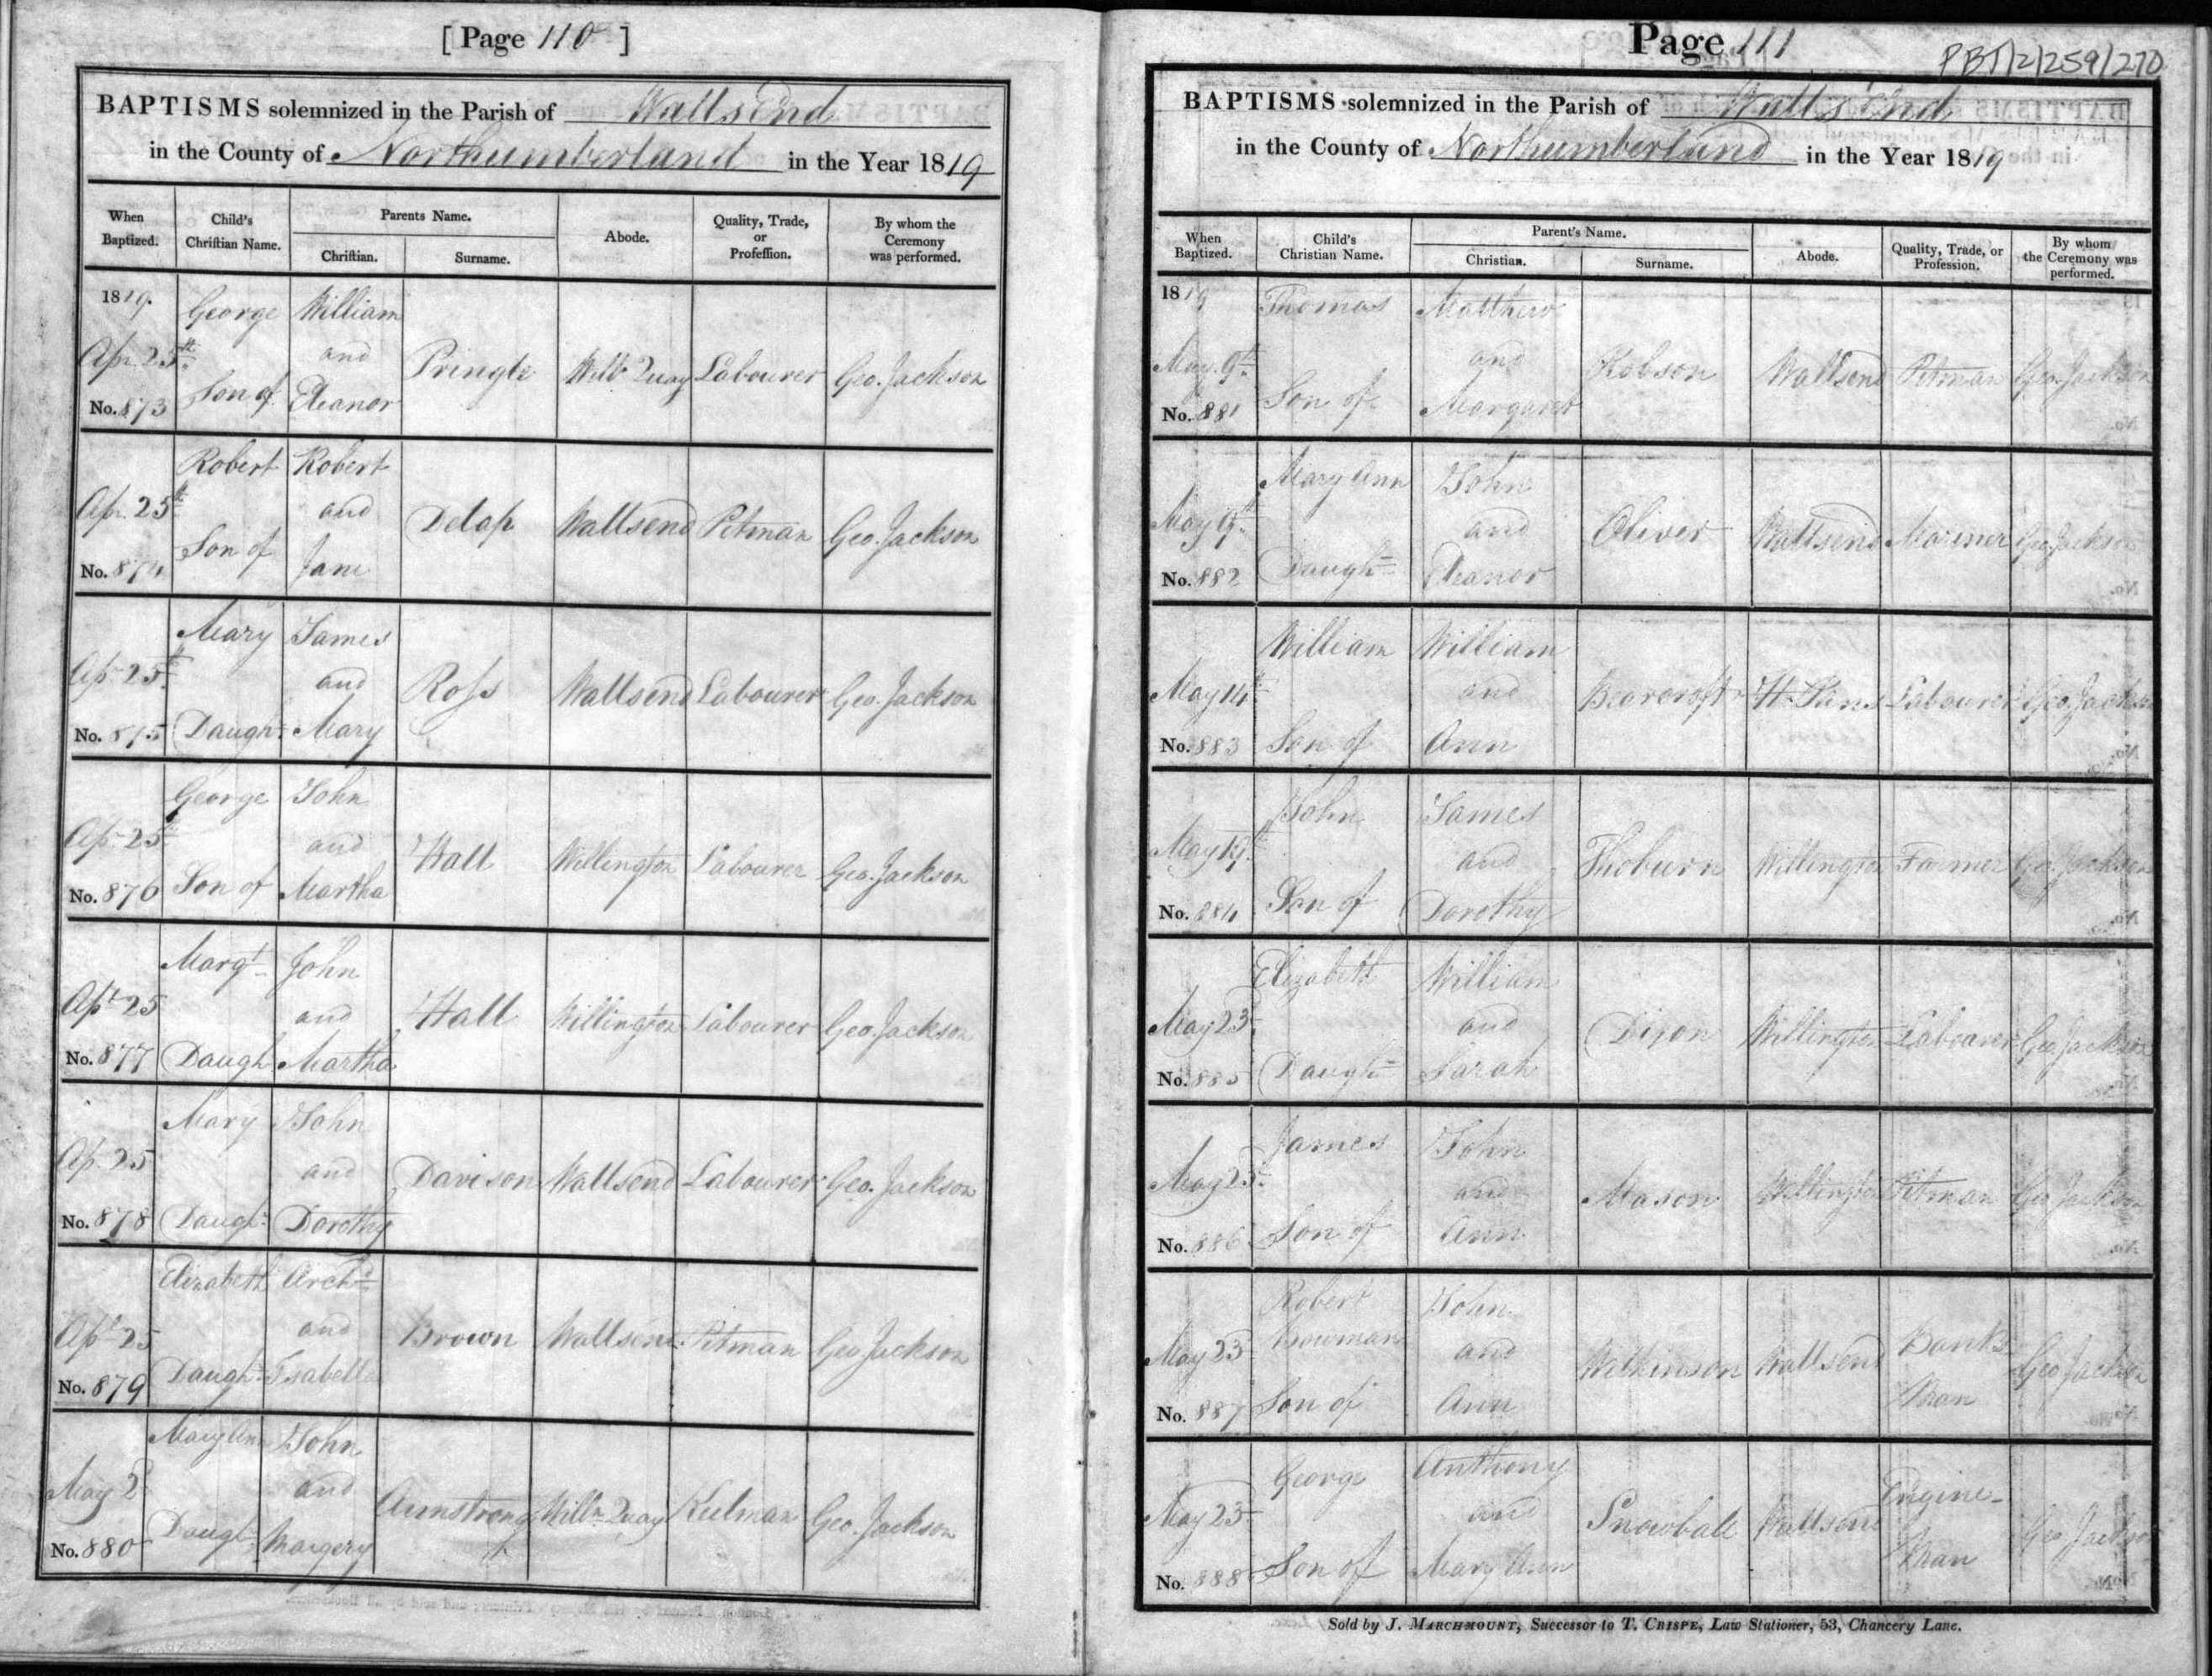 [ Page 110 ]
BAPTISMS solemnized in the Parish of Walls End
in the County of Northumberland in the Year 1819
When Baptized. Child's Christian Name. Parents Name. Christian. Surname. Abode. Quality, Trade, or Profession. By whom the Ceremony was performed.
1819. George William
Apr. 25th and Pringle Willn Quay Labourer Geo. Jackson
No. 873 Son of Eleanor
Robert Robert
Apr. 25th and Delap Wallsend Pitman Geo. Jackson
No. 874 Son of Jane
Mary James
Ap. 25th and Ross Wallsend Labourer Geo. Jackson
No. 875 Daughr Mary
George John
Ap. 25th and Hall Willington Labourer Geo. Jackson
No. 876 Son of Martha
Margt John
Apl 25 and Hall Willington Labourer Geo. Jackson
No. 877 Daugh Martha
Mary John
Ap. 25 and Davison Wallsend Labourer Geo. Jackson
No. 878 Daughr Dorothy
Elizabeth Archd
Apl 25 and Brown Wallsend Pitman Geo Jackson
No. 879 Daughr Isabella
Mary Ann John
May 2 and Armstrong Willn Quay Keelman Geo. Jackson
No. 880 Daughr Margery
Page 111
PBT/2/259/270
BAPTISMS solemnized in the Parish of Walls End
in the County of Northumberland in the Year 1819
When Baptized. Child's Christian Name. Parent's Name. Christian. Surname. Abode. Quality, Trade, or Profession. By whom the Ceremony was performed.
1819 Thomas Matthew
May 9th and Robson Wallsend Pitman Geo. Jackson
No. 881 Son of Margaret
Mary Ann John
May 9th and Oliver Wallsend Mariner Geo Jackson
No. 882 Daughr Eleanor
William William
May 14th and Bearcroft Labourer Geo. Jackson
No. 883 Son of Ann
John James
May and Thoburn Willington Farmer Geo. Jackson
No. 884 Son of Dorothy
Elizabeth William
May 23 and Dixon Willington Labourer Geo Jackson
No. 885 Daughr Sarah
James John
May 23 and Mason Willington Pitman Geo Jackson
No. 886 Son of Ann
Robert John
Bowman Banks
May 23 and Wilkinson Wallsend Geo Jackson
No. 887 Son of Ann Man
George Anthony
Engine-
May 23 and Snowball Wallsend Geo Jackson
Man
No. 888 Son of Mary Ann
Sold by J. MARCHMOUNT, Successor to T. CRISPE, Law Stationer, 53, Chancery Lane.